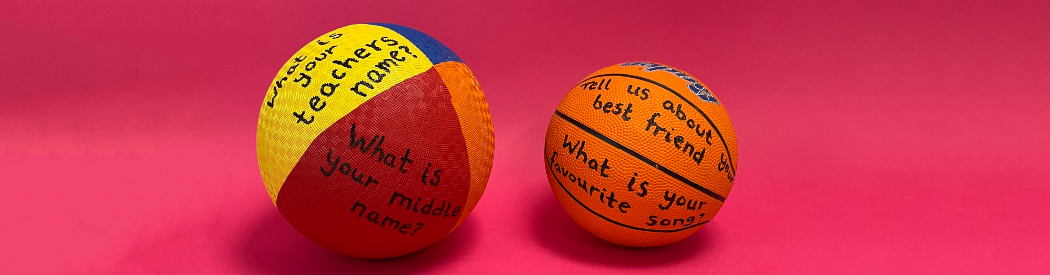 What is
your
teachers
name?
What is
your middle
name?
Tell us about your
best friend
What is your
favourite song?